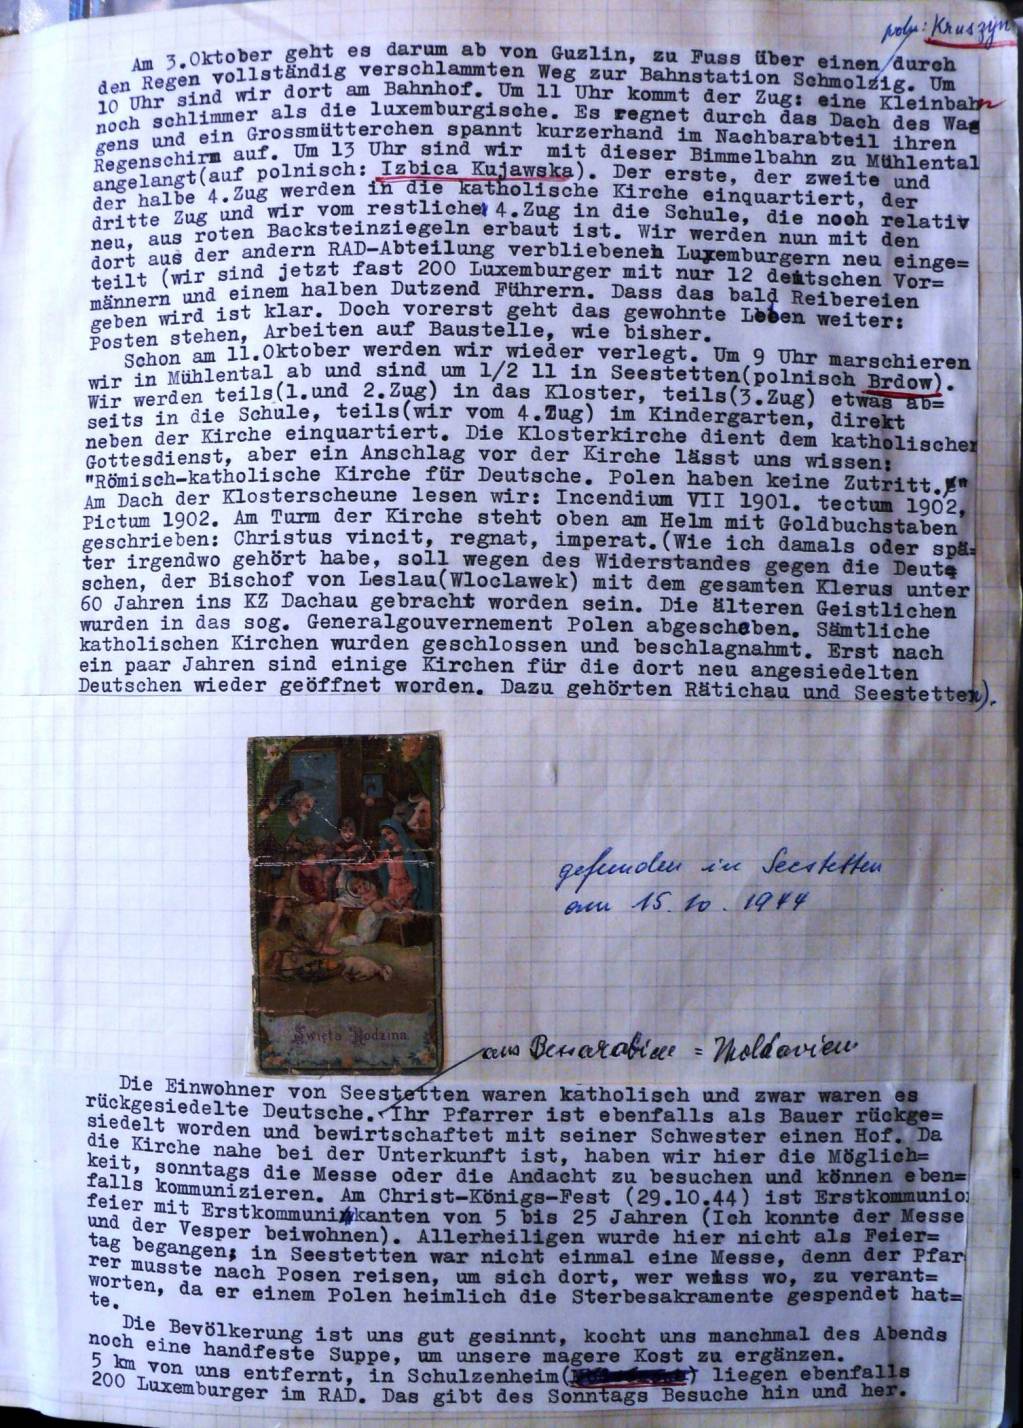 poln: Kruszyn
Am 3.Oktober geht es darum ab von Guzlin, zu Fuss über einen durch
den Regen vollständig verschlammten Weg zur Bahnstation Schmolzig. Um
10 Uhr sind wir dort am Bahnhof. Um 11 Uhr kommt der Zug: eine Kleinbahn
noch schlimmer als die luxemburgische. Es regnet durch das Dach des Wag
gens und ein Grossmütterchen spannt kurzerhand im Nachbarabteil ihren
Regenschirm auf. Um 13 Uhr sind wir mit dieser Bimmelbahn zu Mühlental
angelangt(auf polnisch: Izbica Kujawska). Der erste, der zweite und
der halbe 4.Zug werden in die katholische Kirche einquartiert, der
dritte Zug und wir vom restliche 4.Zug in die Schule, die noch relativ
neu, aus roten Backsteinziegeln erbaut ist. Wir werden nun mit den
dort aus der andern RAD-Abteilung verbliebenen Luxemburgern neu einge=
teilt (wir sind jetzt fast 200 Luxemburger mit nur 12 deutschen Vor=
männern und einem halben Dutzend Führern. Dass das bald Reibereien
geben wird ist klar. Doch vorerst geht das gewohnte Leben weiter:
Posten stehen, Arbeiten auf Baustelle, wie bisher.
Schon am 11.Oktober werden wir wieder verlegt. Um 9 Uhr marschieren
wir in Mühlental ab und sind um 1/2 11 in Seestetten(polnisch Brdow).
Wir werden teils(1.und 2.Zug) in das Kloster, teils(3.Zug) etwas ab=
seits in die Schule, teils(wir vom 4.Zug) im Kindergarten, direkt
neben der Kirche einquartiert. Die Klosterkirche dient dem katholischen
Gottesdienst, aber ein Anschlag vor der Kirche lässt uns wissen:
"Römisch-katholische Kirche für Deutsche. Polen haben keine Zutritt."
Am Dach der Klosterscheune lesen wir: Incendium VII 1901. tectum 1902,
Pictum 1902. Am Turm der Kirche steht oben am Helm mit Goldbuchstaben
geschrieben: Christus vincit, regnat, imperat.(Wie ich damals oder spä=
ter irgendwo gehört habe, soll wegen des Widerstandes gegen die Deut=
schen, der Bischof von Leslau(Wloclawek) mit dem gesamten Klerus unter
60 Jahren ins KZ Dachau gebracht worden sein. Die älteren Geistlichen
wurden in das sog. Generalgouvernement Polen abgeschoben. Sämtliche
katholischen Kirchen wurden geschlossen und beschlagnahmt. Erst nach
ein paar Jahren sind einige Kirchen für die dort neu angesiedelten
Deutschen wieder geöffnet worden. Dazu gehörten Rätichau und Seestetten).
gefunden in Seestetten
am 15.10.1944
Święta Rodzina
aus Bessarabien = Moldavien
Die Einwohner von Seestetten waren katholisch und zwar waren es
rückgesiedelte Deutsche. Ihr Pfarrer ist ebenfalls als Bauer rückge=
siedelt worden und bewirtschaftet mit seiner Schwester einen Hof. Da
die Kirche nahe bei der Unterkunft ist, haben wir hier die Möglich=
keit, sonntags die Messe oder die Andacht zu besuchen und können eben=
falls kommunizieren. Am Christ-Königs-Fest (29.10.44) ist Erstkommunio
feier mit Erstkommunikanten von 5 bis 25 Jahren (Ich konnte der Messe
und der Vesper beiwohnen). Allerheiligen wurde hier nicht als Feier=
tag begangen; in Seestetten war nicht einmal eine Messe, denn der Pfar
rer musste nach Posen reisen, um sich dort, wer weiss wo, zu verant=
worten, da er einem Polen heimlich die Sterbesakramente gespendet hat=
te.
Die Bevölkerung ist uns gut gesinnt, kocht uns manchmal des Abends
noch eine handfeste Suppe, um unsere magere Kost zu ergänzen.
5 km von uns entfernt, in Schulzenheim( ) liegen ebenfalls
200 Luxemburger im RAD. Das gibt des Sonntags Besuche hin und her.